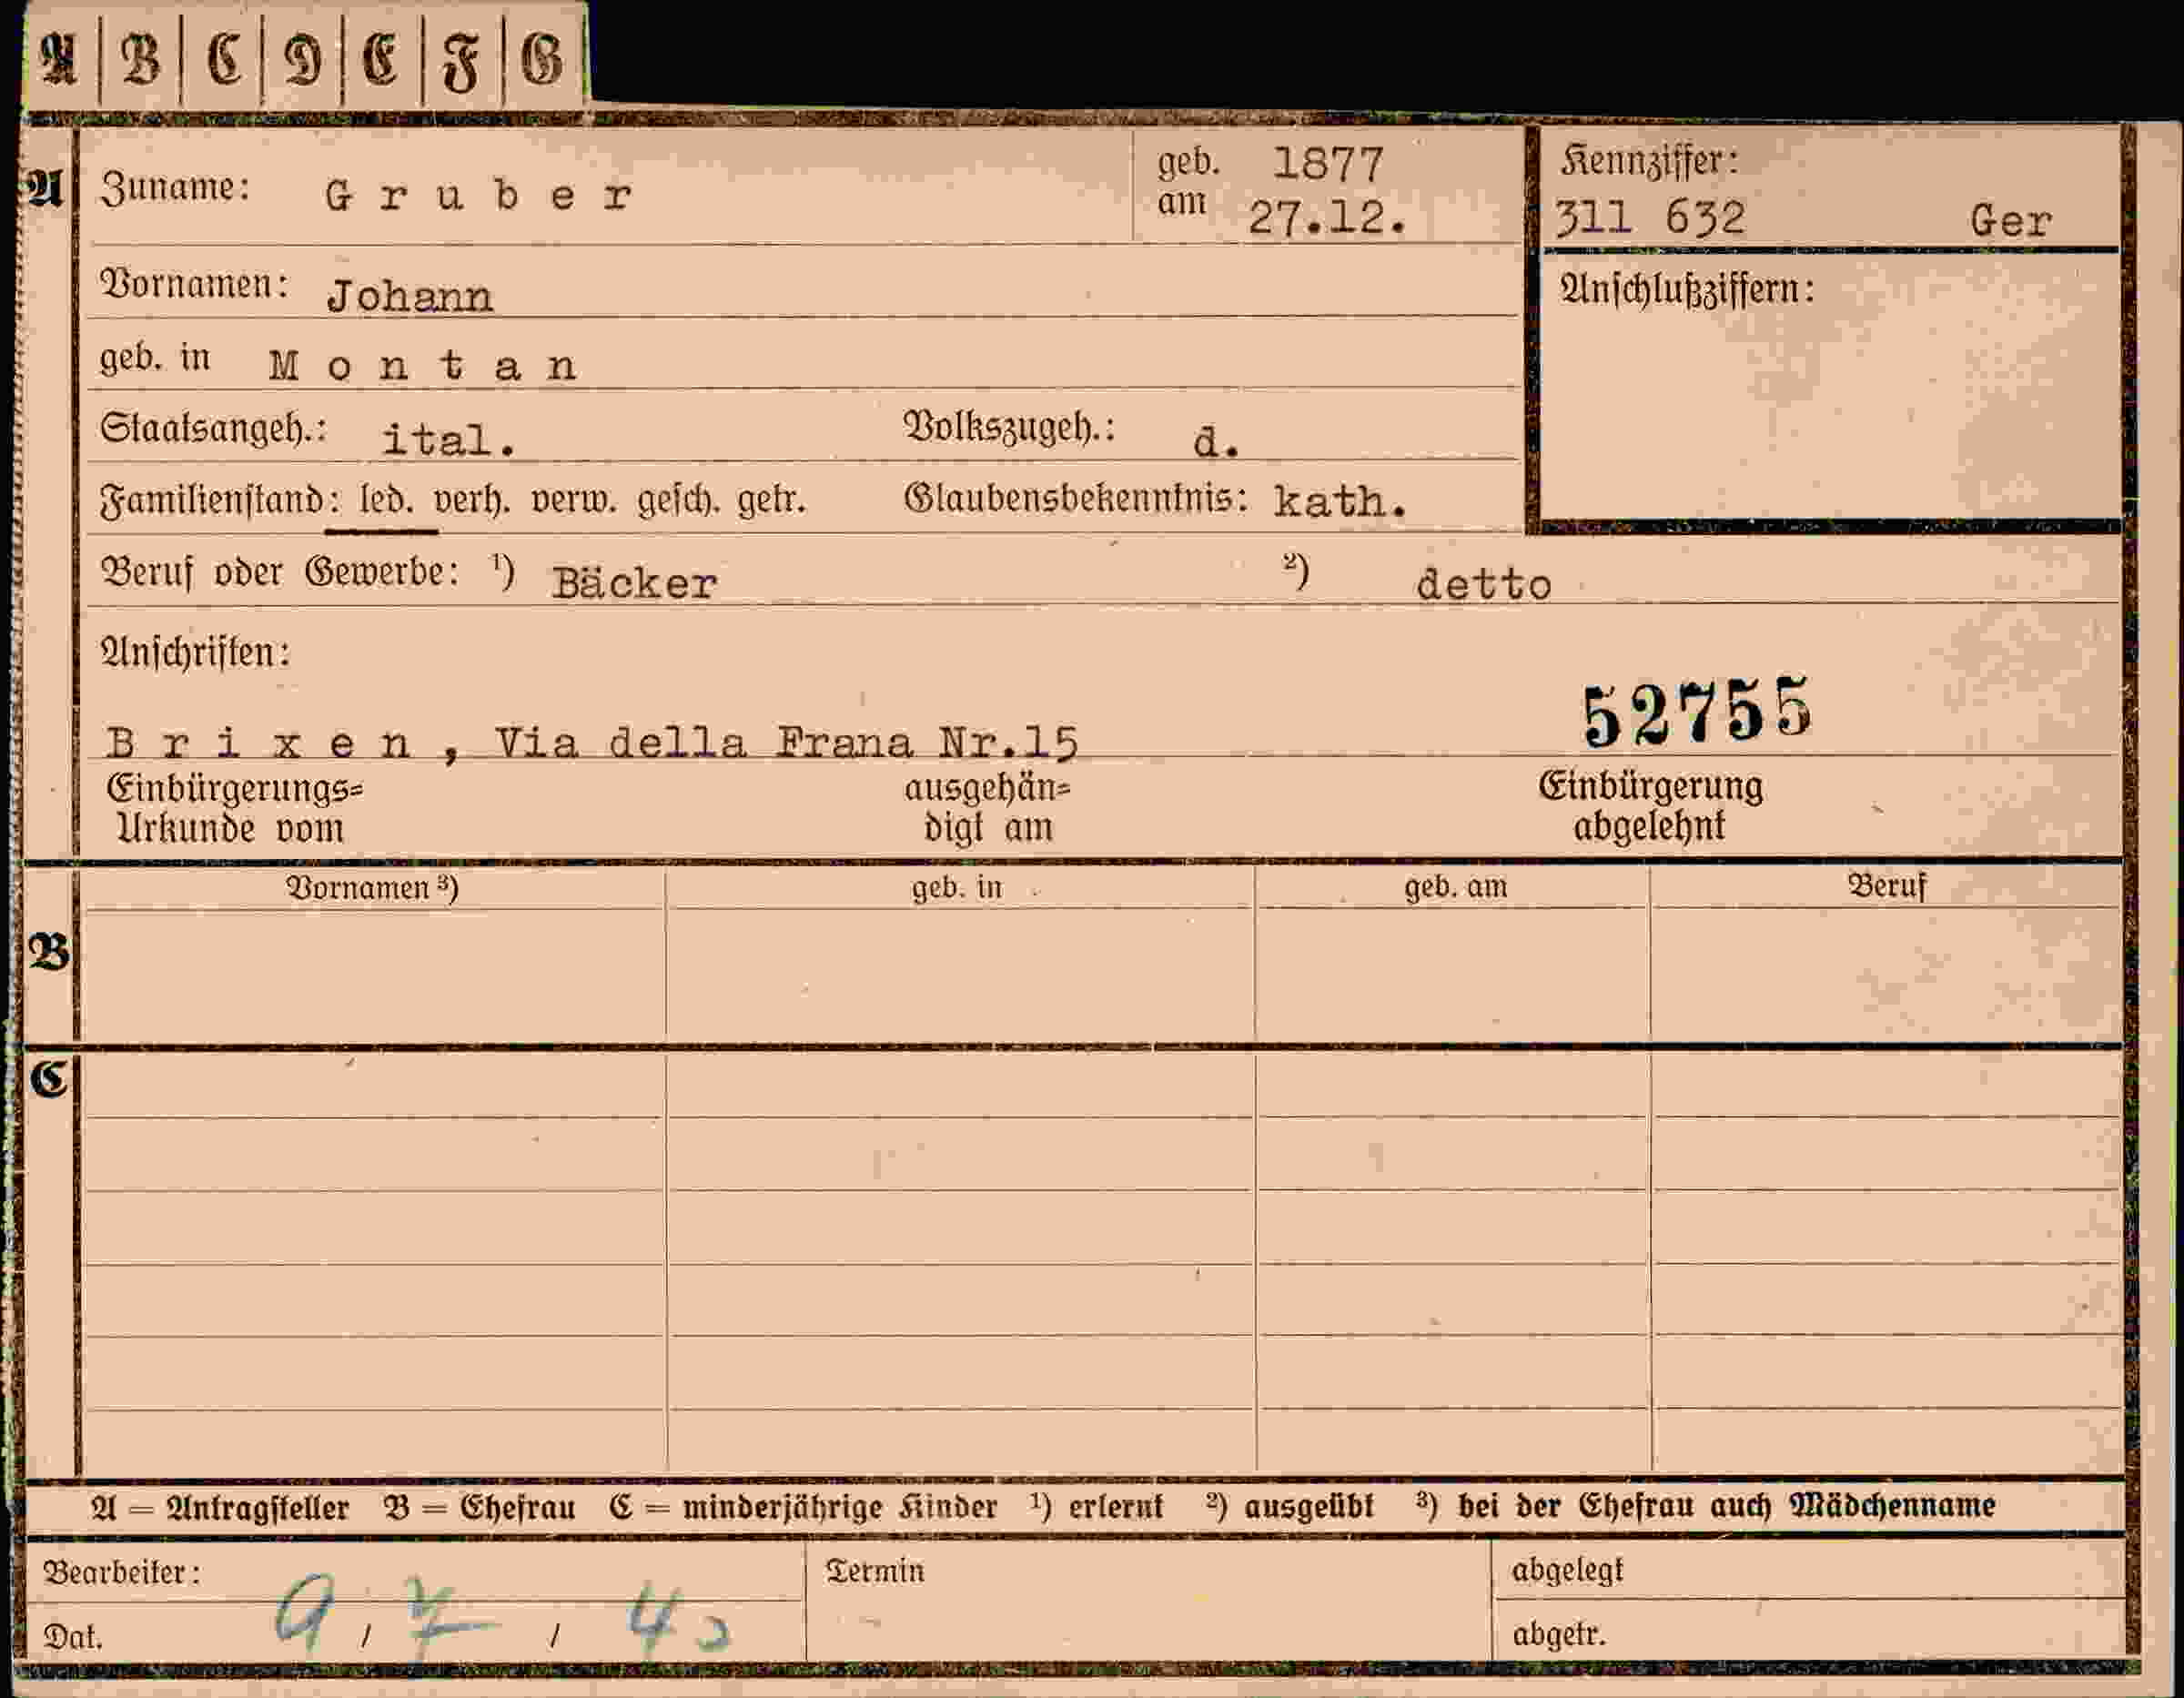 A | B | C | D | E | F | G
A Zuname: Gruber geb. am 1877 27.12. Kennziffer: 311 632 Ger
Vornamen: Johann Anschlußziffern:
geb. in Montan
Staatsangeh.: ital. Volkszugeh.: d.
Familienstand: led. verh. verw. gesch. getr. Glaubensbekenntnis: kath.
Beruf oder Gewerbe: ¹) Bäcker ²) detto
Anschriften:
52755
Brixen, Via della Frana Nr.15
Einbürgerungs= ausgehän= Einbürgerung
Urkunde vom digt am abgelehnt
Vornamen ³) geb. in geb. am Beruf
B
C
A = Antragsteller B = Ehefrau C = minderjährige Kinder ¹) erlernt ²) ausgeübt ³) bei der Ehefrau auch Mädchenname
Bearbeiter: Termin abgelegt
Dat. 9 / 7 / 40 abgetr.